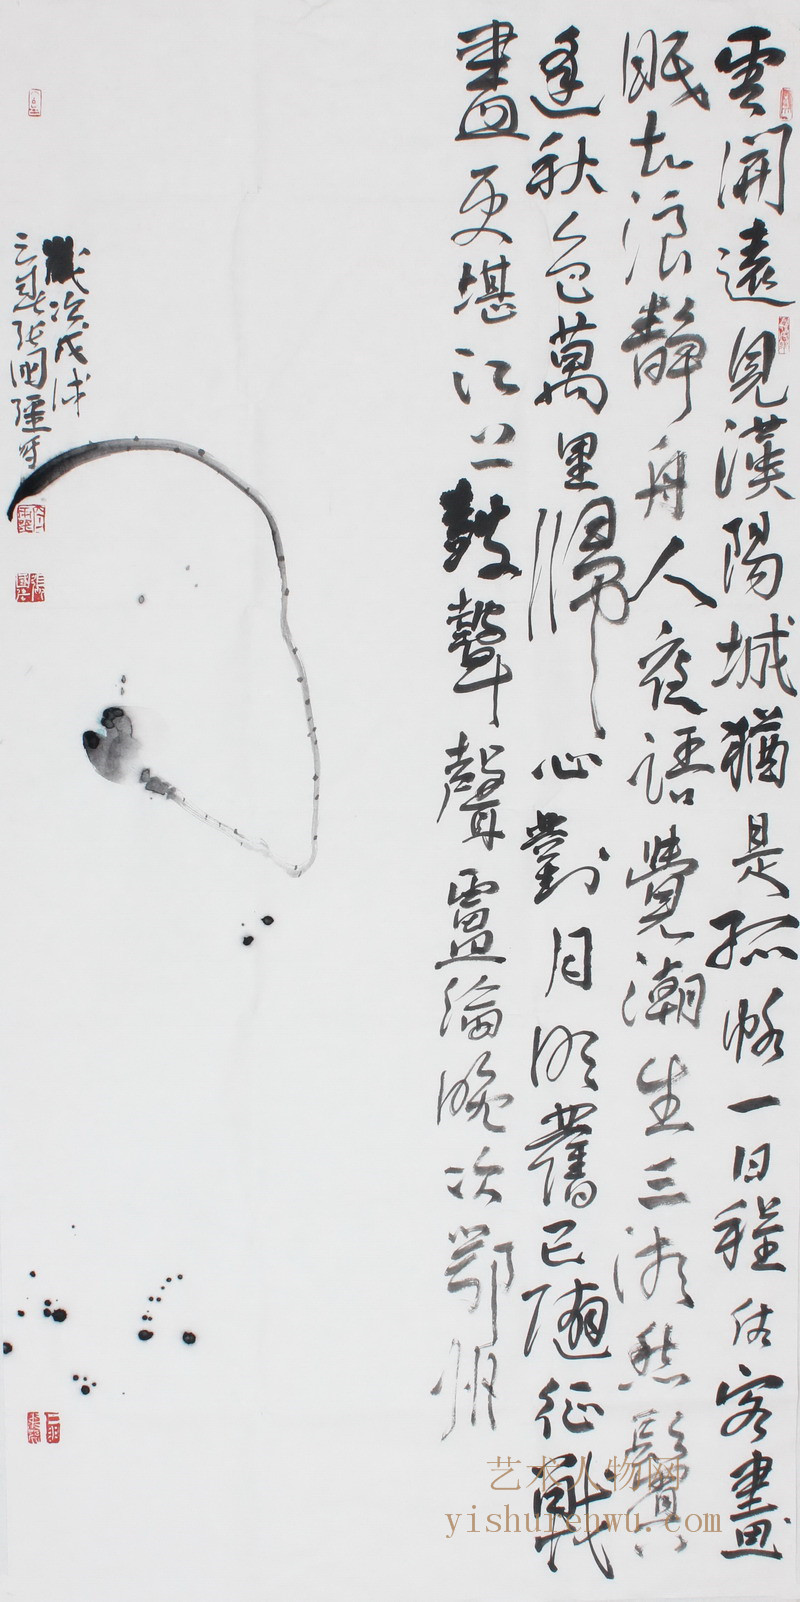 雲開遠見漢陽城猶是孤帆一日程估客畫
眠知浪靜舟人夜語覺潮生三湘愁鬢
逢秋色萬里歸心對月明舊已隨征戰
盡更堪江上鼓鼙聲盧綸晚次鄂州
歲次戊戌
春張國書
艺术人物网
yishurenwu.com